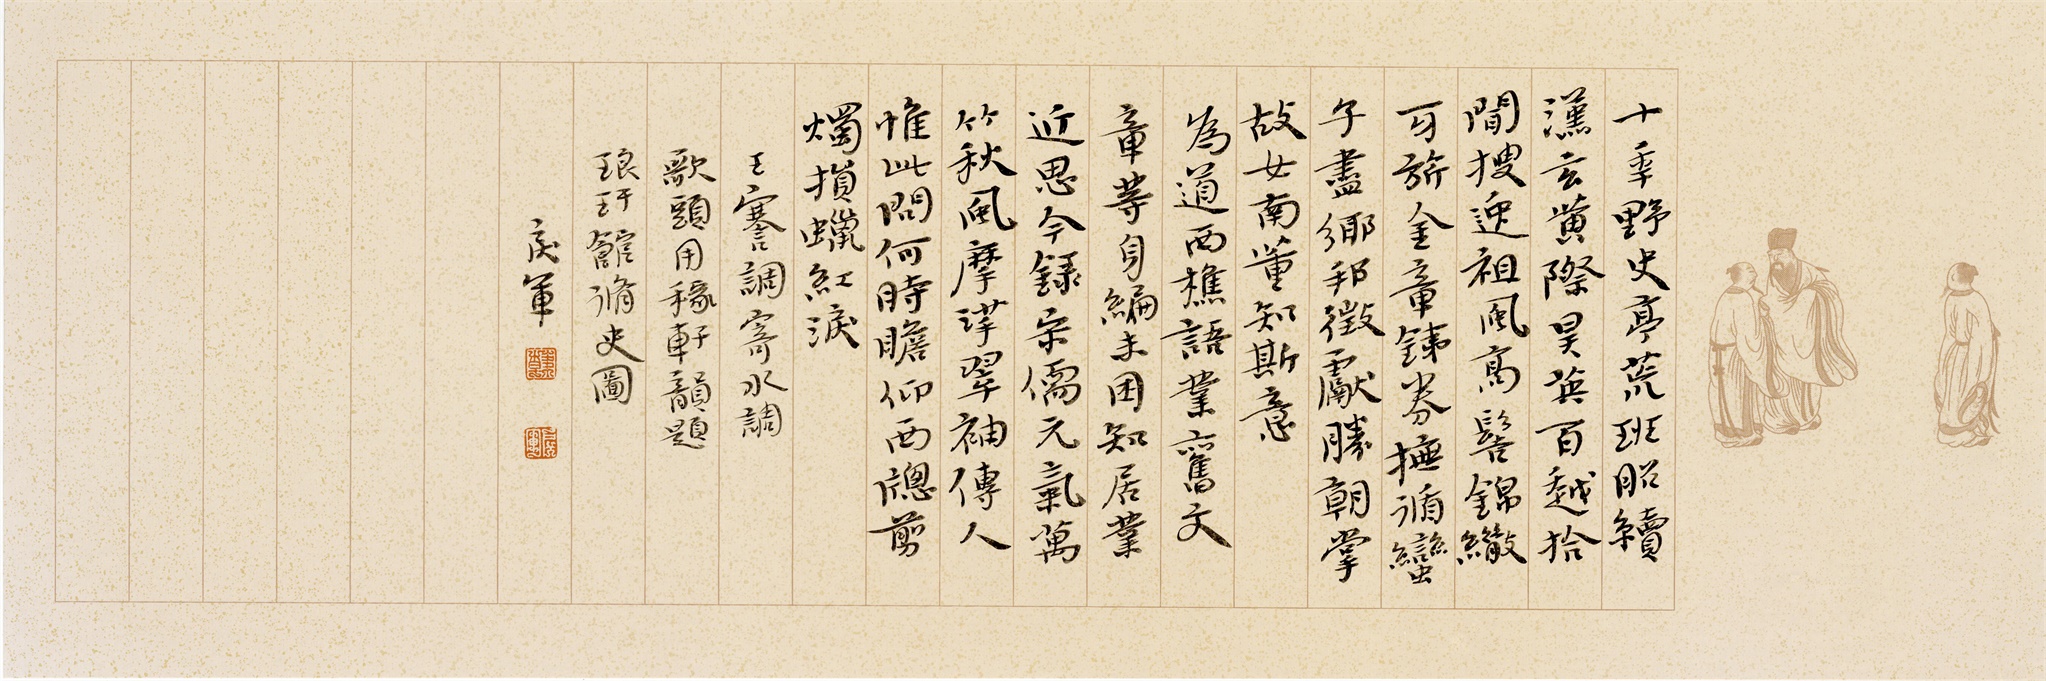 十年野史亭荒班昭續
漢玄黄際昊英百越拾
間搜逸祖風高髻錦繖
丐旂金章鉄券撫循蠻
子盡鄉邦徵獻勝朝掌
故女南董知斯意
為道西樵語業舊文
章等身編未困知居業
近思今録宋儒元氣萬
竹秋風摩挲翠袖傳人
惟此問何時瞻仰西窗剪
燭損蠟紅淚
王騫調寄水調
歌頭用稼軒韻題
琅玕館脩史圖